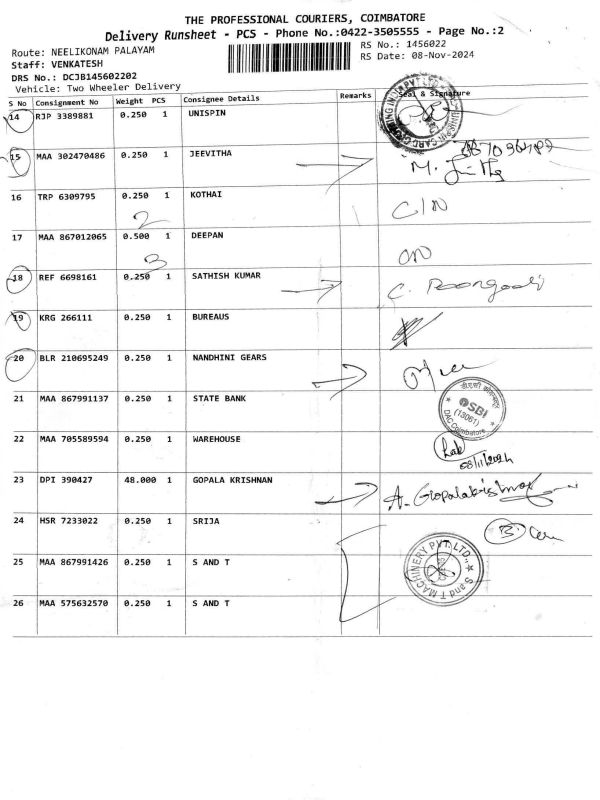 THE PROFESSIONAL COURIERS, COIMBATORE
Delivery Runsheet - PCS - Phone No.:0422-3505555 - Page No.:2
Route: NEELIKONAM PALAYAM
RS No.: 1456022
Staff: VENKATESH
RS Date: 08-Nov-2024
DRS No.: DCJB145602202
Vehicle: Two Wheeler Delivery
S No Consignment No Weight PCS Consignee Details Remarks Seal & Signature
14 RJP 3389881 0.250 1 UNISPIN
15 MAA 302470486 0.250 1 JEEVITHA
M.
16 TRP 6309795 0.250 1 KOTHAI C/N
2
17 MAA 867012065 0.500 1 DEEPAN
3
18 REF 6698161 0.250 1 SATHISH KUMAR C.
19 KRG 266111 0.250 1 BUREAUS
20 BLR 210695249 0.250 1 NANDHINI GEARS
21 MAA 867991137 0.250 1 STATE BANK
SBI
(13061)
DAC Coimbatore
22 MAA 705589594 0.250 1 WAREHOUSE
08/11/2024
23 DPI 390427 48.000 1 GOPALA KRISHNAN A. Gopalakrishnan
24 HSR 7233022 0.250 1 SRIJA B
25 MAA 867991426 0.250 1 S AND T
S and T MACHINERY PVT. LTD.,
26 MAA 575632570 0.250 1 S AND T